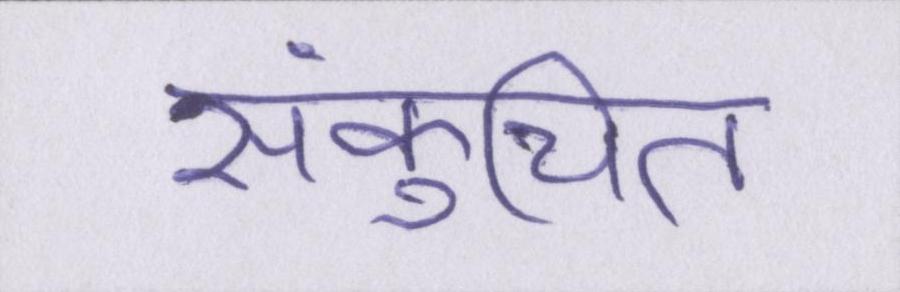 संकुचित